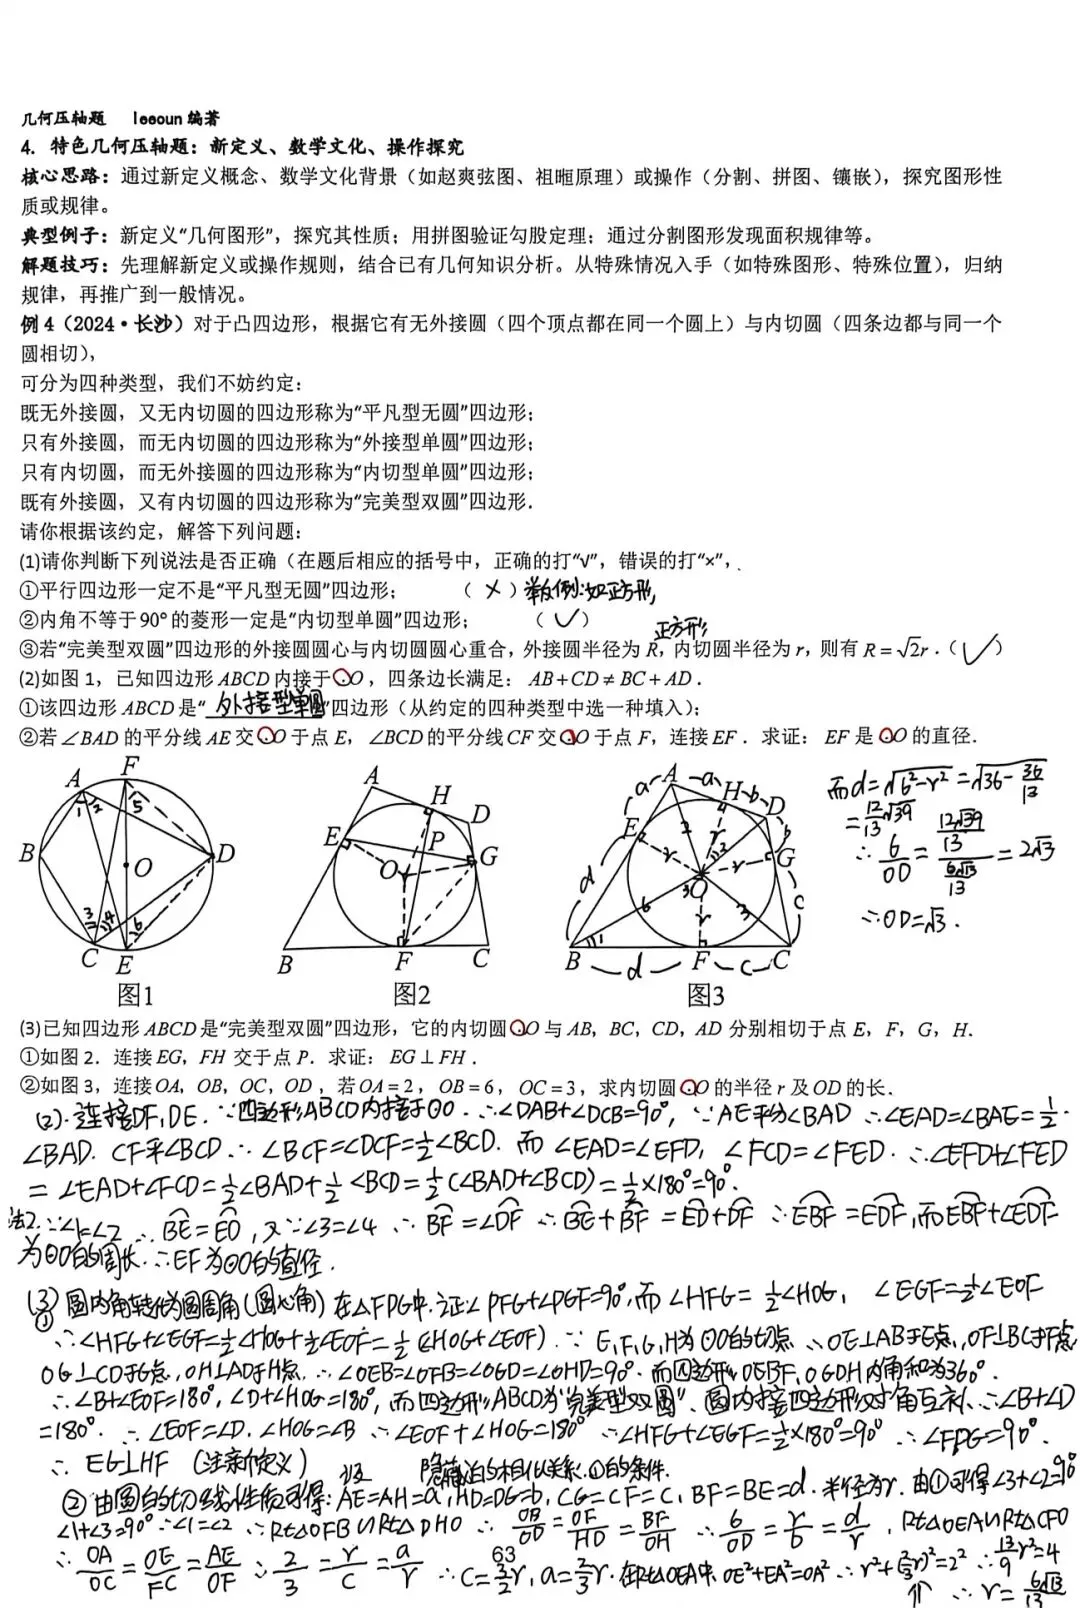 几何压轴题 leeoun 编著
4. 特色几何压轴题：新定义、数学文化、操作探究
核心思路：通过新定义概念、数学文化背景（如赵爽弦图、祖暅原理）或操作（分割、拼图、镶嵌），探究图形性
质或规律。
典型例子：新定义“几何图形”，探究其性质；用拼图验证勾股定理；通过分割图形发现面积规律等。
解题技巧：先理解新定义或操作规则，结合已有几何知识分析。从特殊情况入手（如特殊图形、特殊位置），归纳
规律，再推广到一般情况。
例 4（2024·长沙）对于凸四边形，根据它有无外接圆（四个顶点都在同一个圆上）与内切圆（四条边都与同一个
圆相切），
可分为四种类型，我们不妨约定：
既无外接圆，又无内切圆的四边形称为“平凡型无圆”四边形；
只有外接圆，而无内切圆的四边形称为“外接型单圆”四边形；
只有内切圆，而无外接圆的四边形称为“内切型单圆”四边形；
既有外接圆，又有内切圆的四边形称为“完美型双圆”四边形．
请你根据该约定，解答下列问题：
(1)请你判断下列说法是否正确（在题后相应的括号中，正确的打“√”，错误的打“×”，.
①平行四边形一定不是“平凡型无圆”四边形； （ × ）举反例:如正方形,
②内角不等于90°的菱形一定是“内切型单圆”四边形； （ ✓ ）
正方形
③若“完美型双圆”四边形的外接圆圆心与内切圆圆心重合，外接圆半径为 R，内切圆半径为 r，则有 R=√2r．（ ✓ ）
(2)如图 1，已知四边形 ABCD 内接于⊙O，四条边长满足：AB+CD≠BC+AD．
①该四边形 ABCD 是“ 外接型单圆 ”四边形（从约定的四种类型中选一种填入）；
②若∠BAD 的平分线 AE 交⊙O 于点 E，∠BCD 的平分线 CF 交⊙O 于点 F，连接 EF．求证：EF 是⊙O 的直径．
A F 1 2 5 B O D 3 4 6 C E
图1
A H D E P G O B F C
图2
a A a H b D E 2 r b G d r 1 2 r O 3 c 6 r 3 B 1 d F c C
图3
而d=√6²-r²=√36-36/13
=12/13√39
∴6/OD=(12√39/13)/(6√13/13)=2√3
∴OD=√3.
(3)已知四边形 ABCD 是“完美型双圆”四边形，它的内切圆⊙O 与 AB，BC，CD，AD 分别相切于点 E，F，G，H．
①如图 2．连接 EG，FH 交于点 P．求证：EG⊥FH．
②如图 3，连接 OA，OB，OC，OD，若 OA=2，OB=6，OC=3，求内切圆⊙O 的半径 r 及 OD 的长．
②.连接DF,DE.∵四边形ABCD内接于⊙O.∴∠DAB+∠DCB=90°,∵AE平分∠BAD ∴∠EAD=∠BAE=1/2
∠BAD. CF平∠BCD∴∠BCF=∠DCF=1/2∠BCD. 而∠EAD=∠EFD, ∠FCD=∠FED.∴∠EFD+∠FED
=∠EAD+∠FCD=1/2∠BAD+1/2∠BCD=1/2(∠BAD+∠BCD)=1/2×180°=90°.
法2.∵∠1=∠2 ∴BE=ED,又∵∠3=∠4 ∴BF=∠DF ∴BE+BF=ED+DF ∴EBF=EDF,而EBF+∠EDF
为⊙O的周长∴EF为⊙O的直径.
(3)① 圆内角转化为圆周角(圆心角) 在△FPG中.证∠PFG+∠PGF=90°,而∠HFG=1/2∠HOG, ∠EGF=1/2∠EOF
∴∠HFG+∠EGF=1/2∠HOG+1/2∠EOF=1/2(∠HOG+∠EOF).∵E,F,G,H为⊙O的切点∴OE⊥AB于E点,OF⊥BC于F点
OG⊥CD于G点,OH⊥AD于H点.∴∠OEB=∠OFB=∠OGD=∠OHD=90°.而四边形OEBF,OGDH内角和为360°.
∴∠B+∠EOF=180°,∠D+∠HOG=180°,而四边形ABCD为“完美型双圆”、圆内接四边形对角互补∴∠B+∠D
=180°.∴∠EOF=∠D.∠HOG=∠B ∴∠EOF+∠HOG=180°∴∠HFG+∠EGF=1/2×180°=90°∴∠FPG=90°.
∴EG⊥HF (注新定义)
隐藏边的相似关系.①的条件.
② 由圆的切线性质可得:AE=AH=a,HD=DG=b,CG=CF=C,BF=BE=d.半径为r.由①可得∠3+∠2=90°
∠1+∠3=90°∴∠1=∠2 ∴Rt△OFB∽Rt△DHO ∴OB/OD=OF/HD=BF/OH ∴6/OD=r/b=d/r, Rt△OEA∽Rt△CFO
∴OA/OC=OE/FC=AE/OF ∴2/3=r/c=a/r ∴c=3/2r,a=2/3r.在Rt△OEA中.OE²+EA²=OA² ∴r²+(2/3r)²=2² ∴13/9r²=4
∴r=6√13/13
63